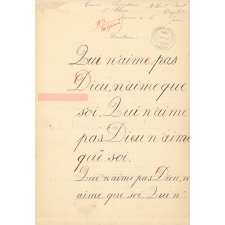 Qui n'aime pas
Dieu, n'aime que
soi. Qui n'aime
pas Dieu n'aime
que soi.
Qui n'aime pas Dieu, n'
aime que soi. Qui n'